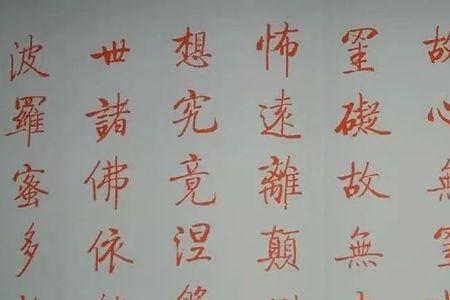 故心無罣
罣礙故無
怖遠離顛
想究竟涅
世諸佛依
波羅蜜多